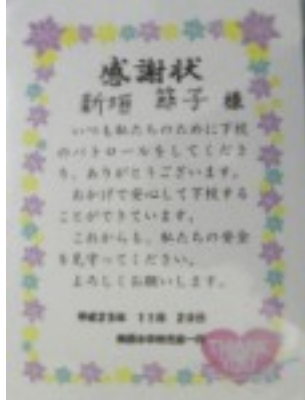 感謝状
新垣 節子 様
いつも私たちのために下校
のパトロールをしてくださ
り、ありがとうございます。
おかげで安心して下校する
ことができています。
これからも、私たちの安全
を見守ってください。
よろしくお願いします。
平成25年 11月 29日